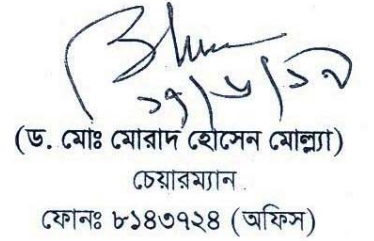 (ড. মোঃ মোরাদ হোসেন মোল্ল্যা)
চেয়ারম্যান
ফোনঃ ৮১৪৩৭২৪ (অফিস)